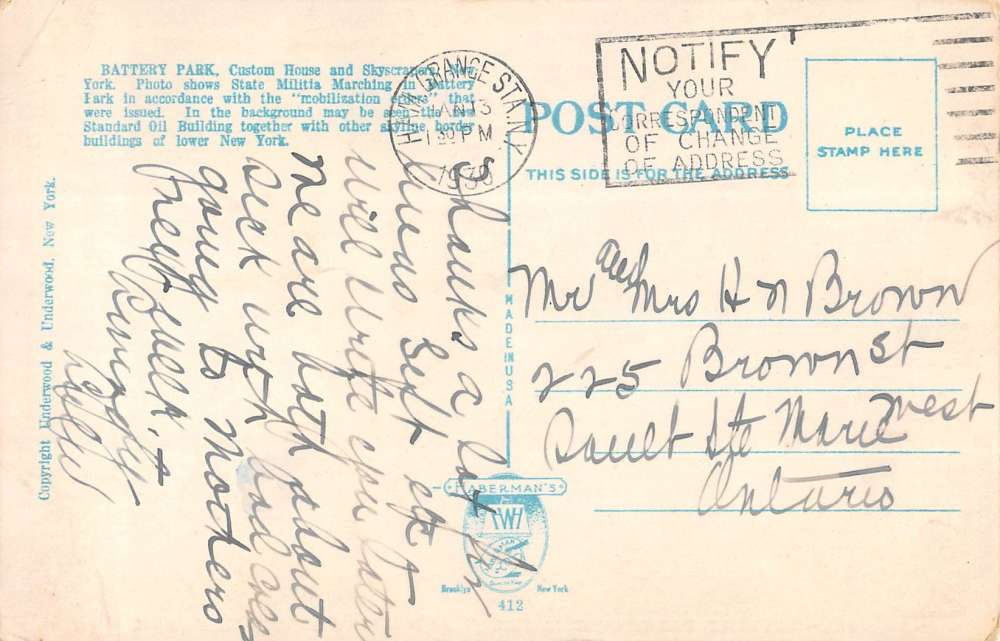 BATTERY PARK, Custom House and Skyscrapers,
York. Photo shows State Militia Marching in Battery
Park in accordance with the "mobilization orders" that
were issued. In the background may be seen the new
Standard Oil Building together with other skyline border
buildings of lower New York.
HAM. GRANGE STA. N.Y.
JAN 13
PM
NOTIFY
YOUR
CORRESPONDENT
OF CHANGE
OF ADDRESS
POST CARD
THIS SIDE IS FOR THE ADDRESS
PLACE
STAMP HERE
Thanks a lot for
Gift etc
will write you later
We are both about
sick with bad
going to Mothers
next week, +
Mr and Mrs H N Brown
225 Brown St
Sault Ste Marie west
Ontario
Copyright Underwood & Underwood, New York.
MADE IN USA
HABERMAN'S
Brooklyn New York
412